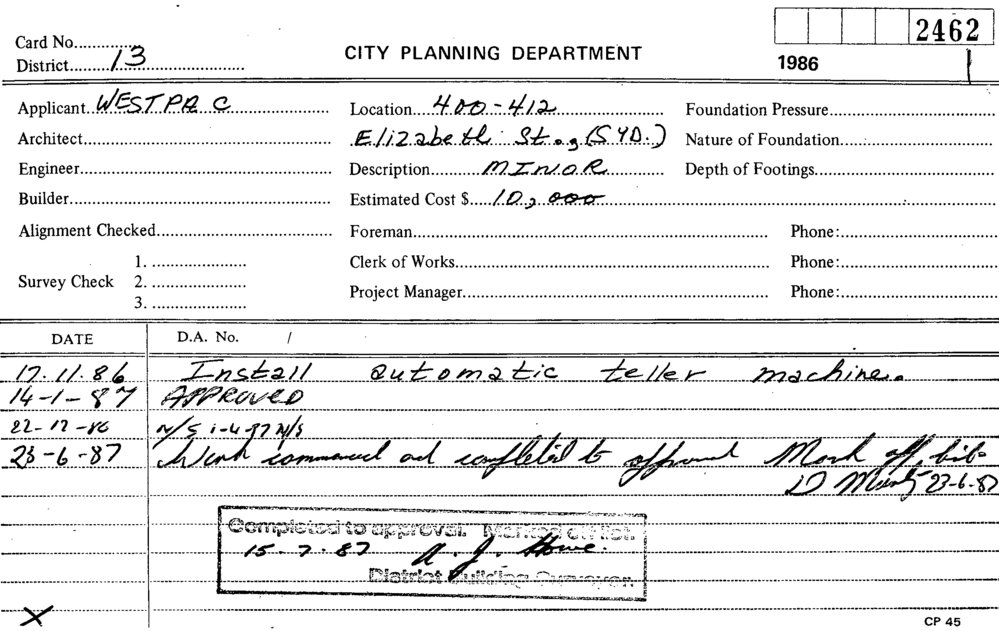 Card No. 2462
District 13 CITY PLANNING DEPARTMENT 1986
Applicant WESTPAC Location 400-412 Foundation Pressure
Architect Elizabeth St., (SYD.) Nature of Foundation
Engineer Description MINOR Depth of Footings
Builder Estimated Cost $ 10,000
Alignment Checked Foreman Phone:
1. Clerk of Works Phone:
Survey Check 2.
3. Project Manager Phone:
DATE D.A. No. /
17.11.86 Install automatic teller machine.
14-1-87 APPROVED
22-12-86 N/S 1-4-87 N/S
23-6-87 Work commenced and completed to approval Mark off list
D 23-6-87
Completed to approval. Marked off list.
15-7-87 A. J. Howe.
District Building Surveyor.
X
CP 45